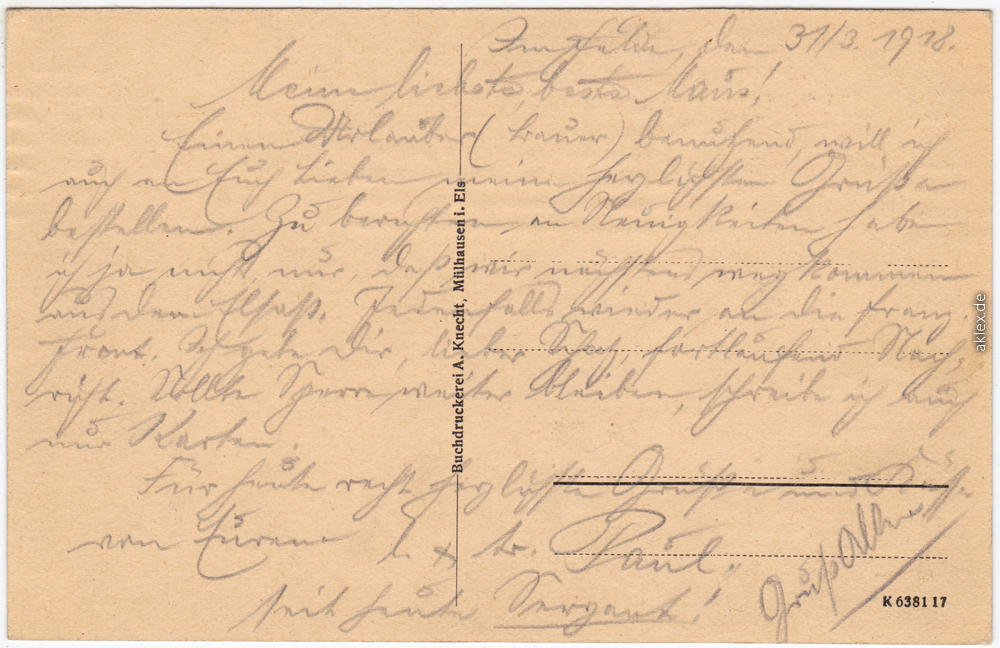 Im Felde, den 31/3. 1918.
Meine liebste, beste Maus!
Einen Urlauber (Brauer) benutzend, will ich
auch an Euch Lieben meine herzlichsten Grüße
bestellen. Zu berichten an Neuigkeiten habe
ich ja nicht, nur, daß wir nächstens weg kommen
aus dem Elsaß. Jedenfalls wieder an die franz.
Front. Ich gebe Dir, lieber Schatz, fortlaufend Nach-
richt. Sollte Sperre weiter bleiben, schreibe ich auch
nur Karten.
Für heute recht herzlichste Grüße und Küsse
von Eurem l. & tr. Paul,
seit heute Sergant!
Gruß Allen
Buchdruckerei A. Knecht, Mülhausen i. Els
K 6381 17
aklex.de